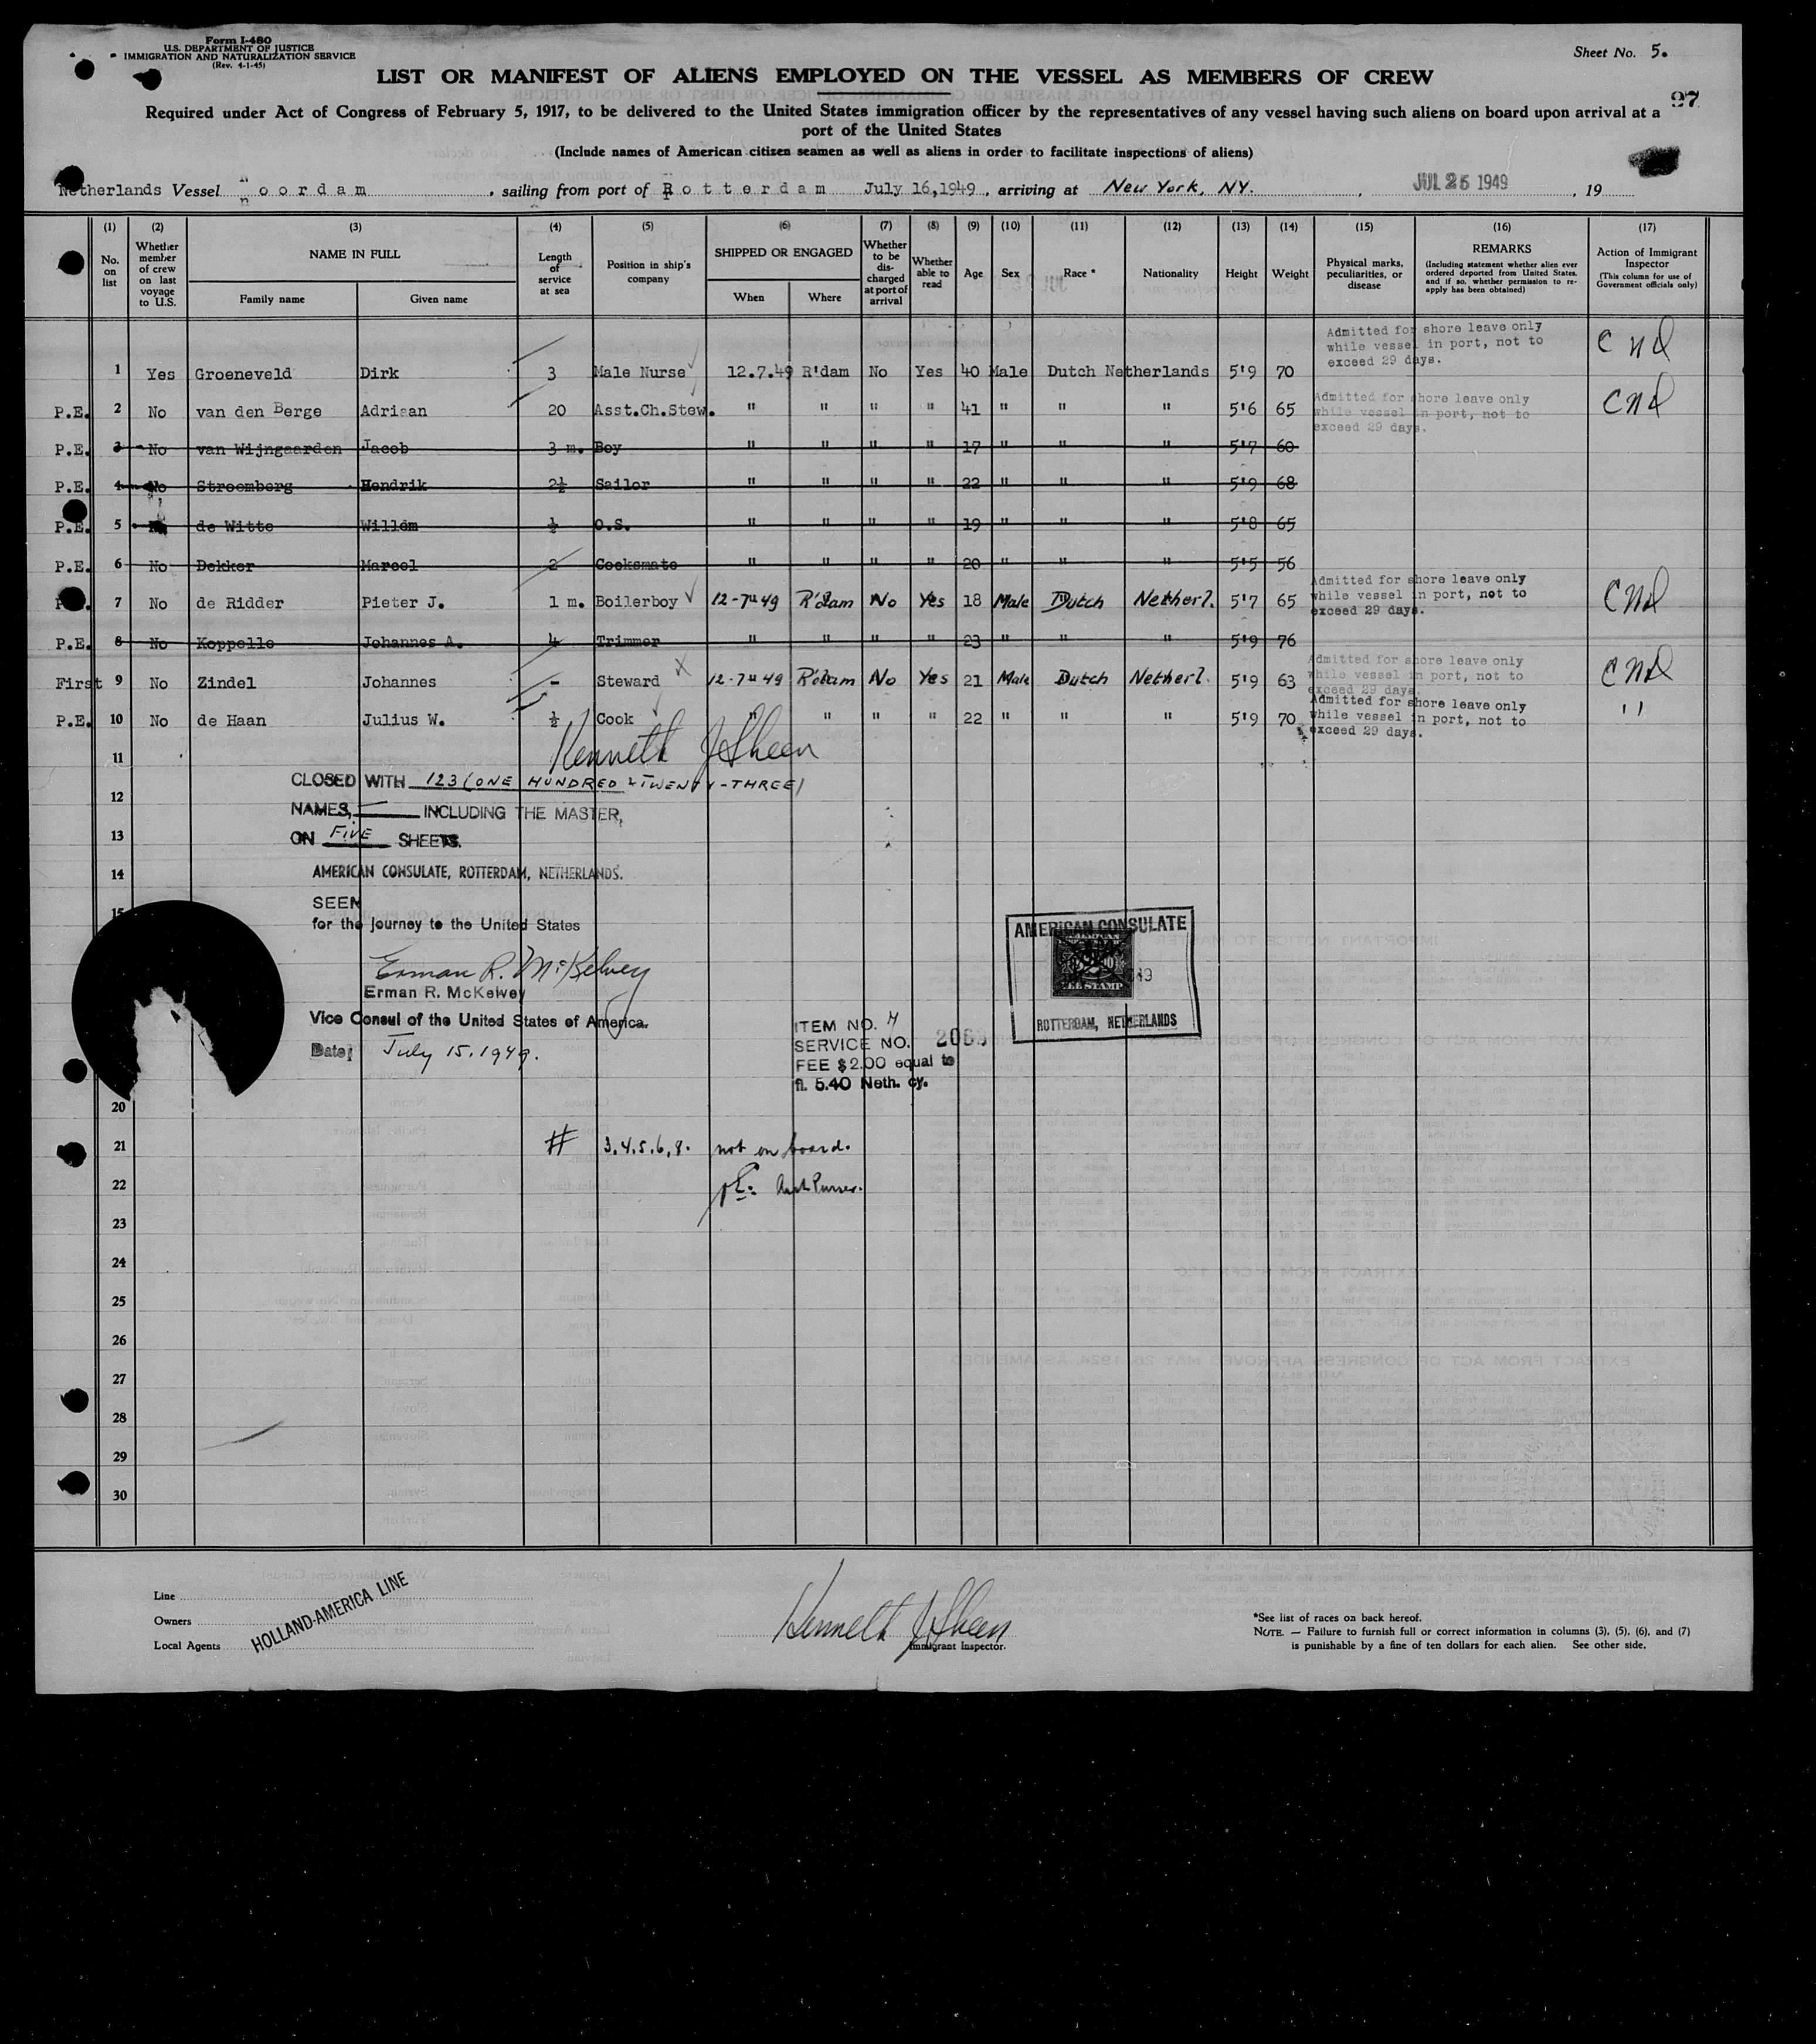 Form I-480
U.S. DEPARTMENT OF JUSTICE
IMMIGRATION AND NATURALIZATION SERVICE
(Rev. 4-1-45)
Sheet No. 5.
LIST OR MANIFEST OF ALIENS EMPLOYED ON THE VESSEL AS MEMBERS OF CREW
97
Required under Act of Congress of February 5, 1917, to be delivered to the United States immigration officer by the representatives of any vessel having such aliens on board upon arrival at a
port of the United States
(Include names of American citizen seamen as well as aliens in order to facilitate inspections of aliens)
Netherlands Vessel Noordam, sailing from port of Rotterdam July 16,1949, arriving at New York, NY., JUL 25 1949, 19
(1) (2) (3) (4) (5) (6) (7) (8) (9) (10) (11) (12) (13) (14) (15) (16) (17)
No. on list
Whether member of crew on last voyage to U.S.
NAME IN FULL
Family name Given name
Length of service at sea
Position in ship's company
SHIPPED OR ENGAGED
When Where
Whether to be discharged at port of arrival
Whether able to read
Age
Sex
Race *
Nationality
Height
Weight
Physical marks, peculiarities, or disease
REMARKS
(Including statement whether alien ever ordered deported from United States, and if so, whether permission to reapply has been obtained)
Action of Immigrant Inspector
(This column for use of Government officials only)
Admitted for shore leave only
while vessel in port, not to
exceed 29 days.
1 Yes Groeneveld Dirk 3 Male Nurse 12.7.49 R'dam No Yes 40 Male Dutch Netherlands 5'9 70
Admitted for shore leave only
while vessel in port, not to
exceed 29 days.
P.E. 2 No van den Berge Adriaan 20 Asst.Ch.Stew. " " " " 41 " " " 5'6 65
P.E. 3 No van Wijngaarden Jacob 3 m. Boy " " " " 17 " " " 5'7 60
P.E. 4 No Stroomberg Hendrik 2½ Sailor " " " " 22 " " " 5'9 68
P.E. 5 de Witte Willem ½ O.S. " " " " 19 " " " 5'8 65
P.E. 6 No Dekker Marcel 2 Cooksmate " " " " 20 " " " 5'5 56
Admitted for shore leave only
while vessel in port, not to
exceed 29 days.
7 No de Ridder Pieter J. 1 m. Boilerboy 12-7-49 R'dam No Yes 18 Male Dutch Netherl. 5'7 65
P.E. 8 No Koppelle Johannes A. 4 Trimmer " " " " 23 " " " 5'9 76
Admitted for shore leave only
while vessel in port, not to
exceed 29 days.
First 9 No Zindel Johannes - Steward 12-7-49 R'dam No Yes 21 Male Dutch Netherl. 5'9 63
Admitted for shore leave only
while vessel in port, not to
exceed 29 days.
P.E. 10 No de Haan Julius W. ½ Cook " " " " 22 " " " 5'9 70 "
Kenneth J Sheen
11
CLOSED WITH 123 (ONE HUNDRED & TWENTY-THREE)
12
NAMES, INCLUDING THE MASTER,
13
ON FIVE SHEETS.
14
AMERICAN CONSULATE, ROTTERDAM, NETHERLANDS.
SEEN
15
for the journey to the United States
AMERICAN CONSULATE
FEE STAMP
ROTTERDAM, NETHERLANDS
Erman R. McKelvey
Erman R. McKelvey
Vice Consul of the United States of America.
Date; July 15. 1949.
ITEM NO. 4
SERVICE NO.
FEE $2.00 equal to
fl. 5.40 Neth. cy.
20
21
# 3.4.5.6,8. not on board.
22
Asst Purser.
23
24
25
26
27
28
29
30
Line
Owners
Local Agents
HOLLAND-AMERICA LINE
Kenneth J Sheen
Immigrant Inspector.
*See list of races on back hereof.
NOTE. — Failure to furnish full or correct information in columns (3), (5), (6), and (7)
is punishable by a fine of ten dollars for each alien. See other side.